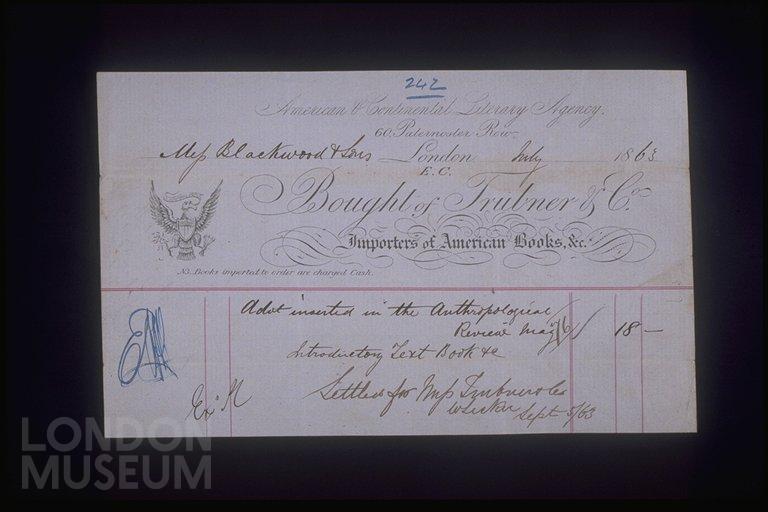 242
American & Continental Literary Agency.
60, Paternoster Row.
Mess Blackwood & Sons London July 1863
E.C.
Bought of Trübner & Co.
Importers of American Books, &c.
N.B. Books imported to order are charged Cash.
Advt inserted in the Anthropological
Review May 18 —
Introductory Text Book &c
Settled for Mess Trubner & Co
Sept 5/63
LONDON
MUSEUM